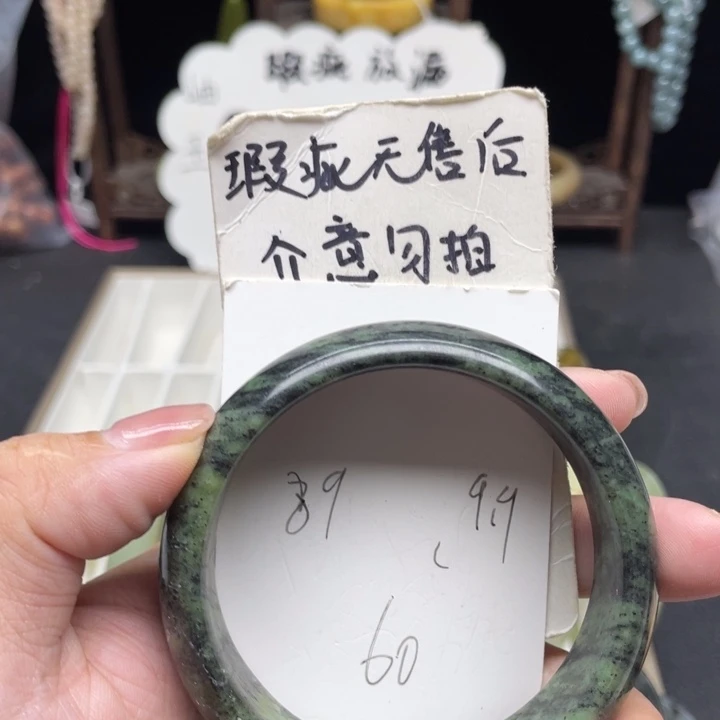 瑕疵放漏
瑕疵无售后
介意勿拍
89
9.9
60